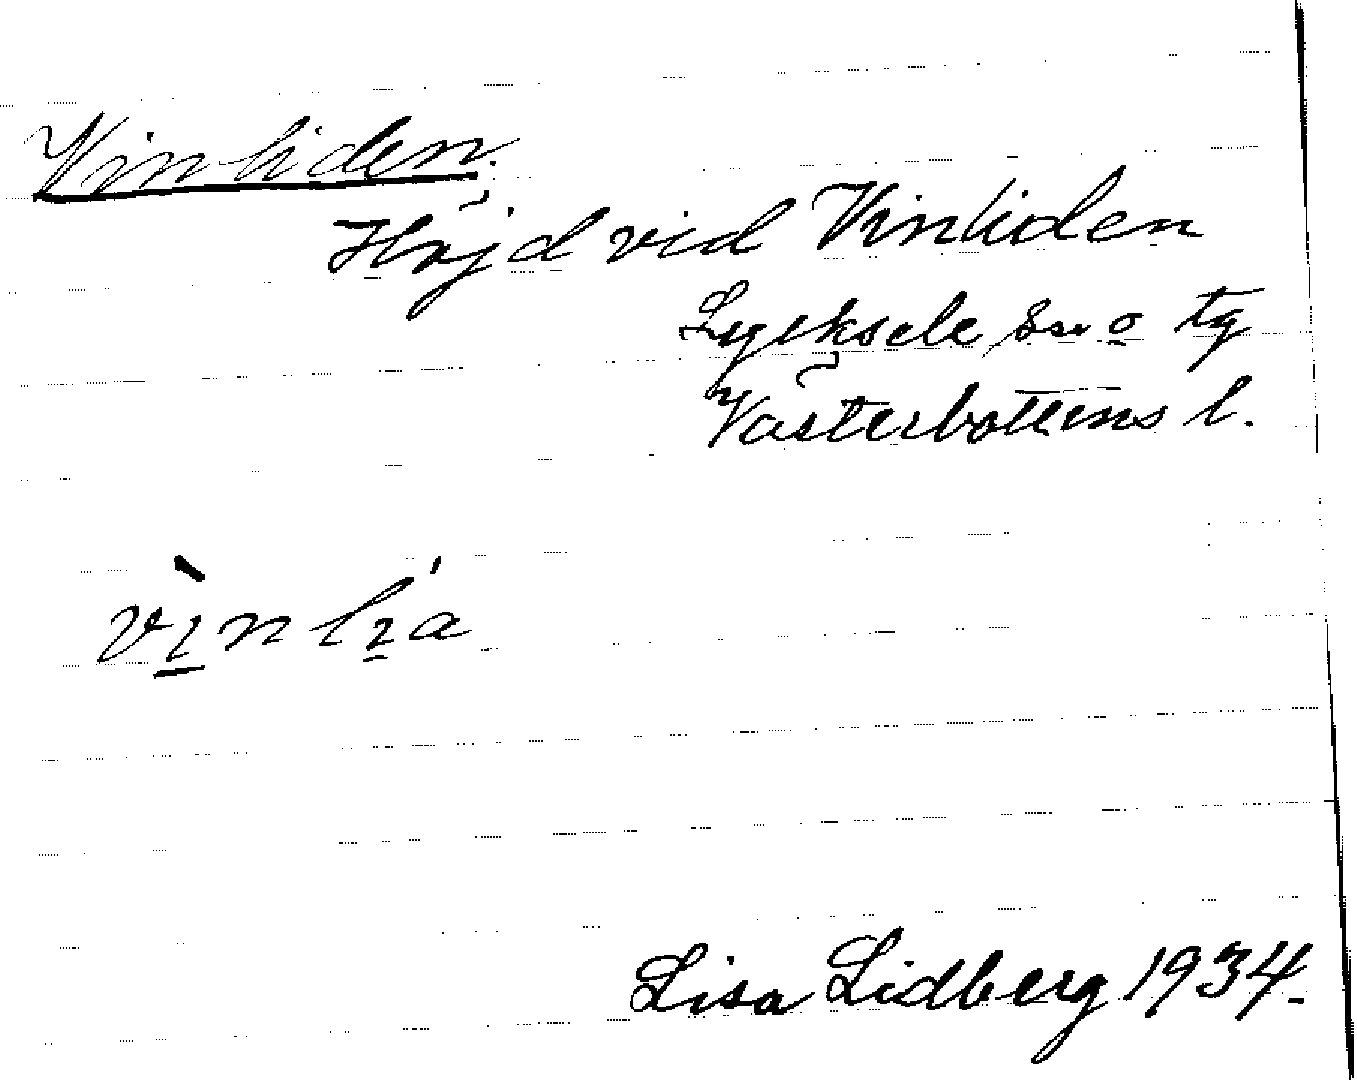 Vinliden.
Höjd vid Vinliden
Lycksele sn o tg
Västerbottens l.
vìnlı́a
Lisa Lidberg 1934.